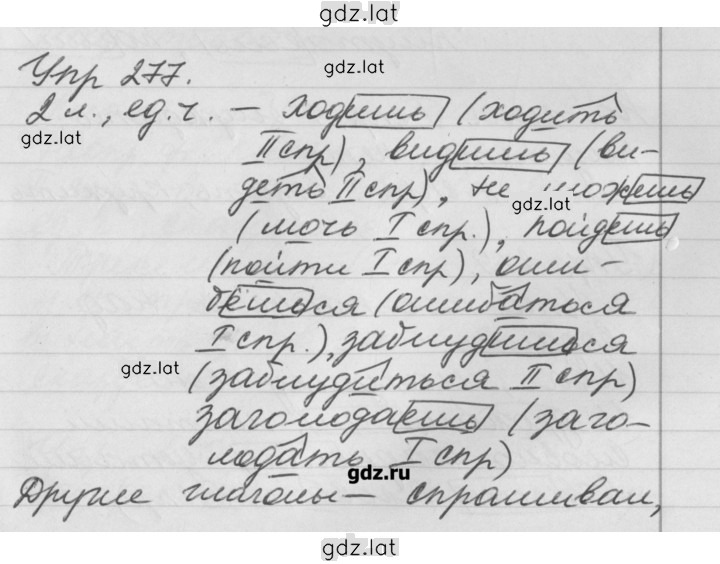 gdz.lat
Упр 277.
gdz.lat
2 л., ед.ч. – ходишь (ходить
gdz.lat
II спр), видишь (ви-
деть II спр), не можешь
gdz.lat
(мочь I спр.), пойдешь
(пойти I спр), оши-
бёшься (ошибаться
I спр.), заблудишься
gdz.lat
(заблудиться II спр)
заголодаешь (заго-
лодать I спр)
gdz.ru
Другие глаголы – спрашивал,
gdz.lat